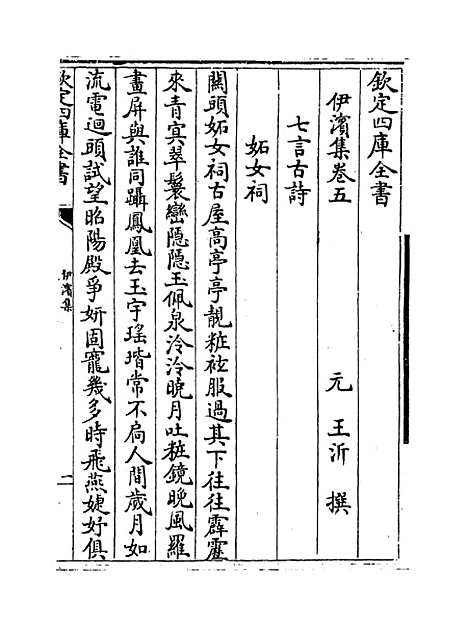 欽定四庫全書
伊濱集卷五
元 王沂 撰
七言古詩
妬女祠
關頭妬女祠古屋高亭亭靚粧袨服過其下往往霹靂
來青㝠翠鬟巒隠隠玉佩泉泠泠晓月吐粧鏡晚風羅
畫屏與誰同躡鳳凰去玉宇瑤堦常不扃人間歲月如
流電迴頭試望昭陽殿爭妍固寵幾多時飛燕婕妤俱
欽定四庫全書
伊濱集
二